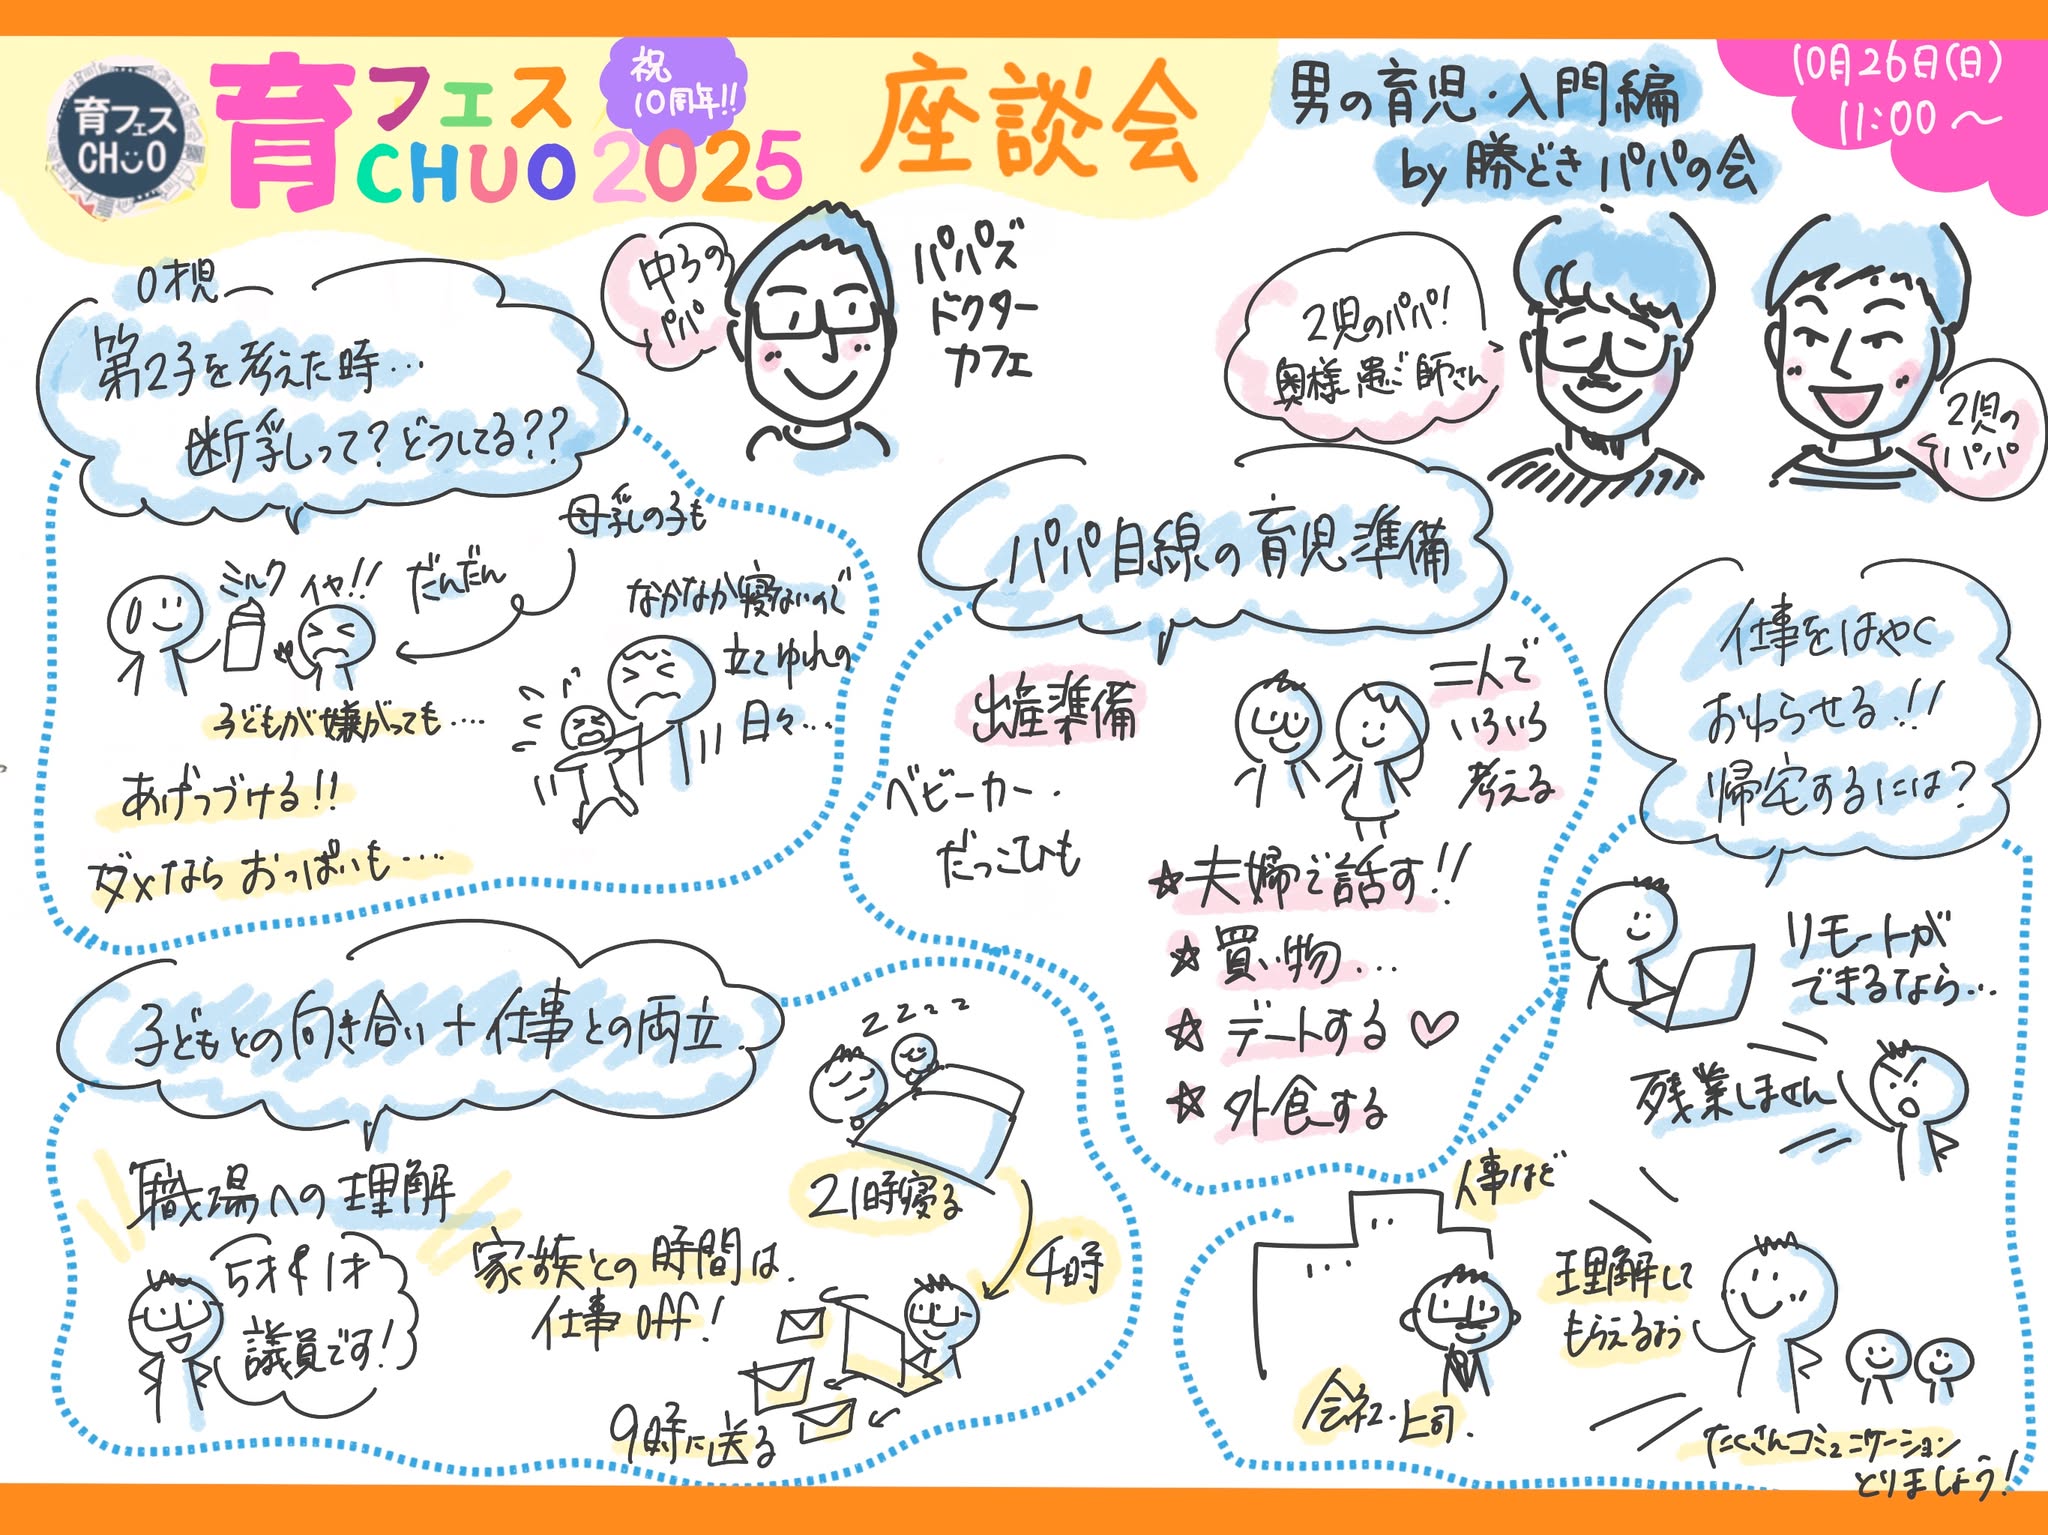 育フェス
CHUO
育フェス
CHUO 2025
祝
10周年!!
座談会
男の育児・入門編
by 勝どきパパの会
10月26日(日)
11:00〜
パパズ
ドクター
カフェ
2児のパパ!
奥様 患ご師さん
2児の
パパ
0才児
第2子を考えた時…
断乳って?どうしてる??
母乳の子も
だんだん
ミルク
イヤ!!
子どもが嫌がっても….
あげつづける!!
ダメなら おっぱいも….
なかなか寝ないので
立てゆれの
日々…
パパ目線の育児準備
出産準備
ベビーカー・
だっこひも
二人で
いろいろ
考える
☆夫婦で話す!!
☆買い物…
☆デートする♡
☆外食する
仕事をはやく
おわらせる!!
帰宅するには?
リモートが
できるなら…
残業しません
人事など
会社・上司.
理解して
もらえるよう
たくさんコミュニケーション
とりましょう!
子どもとの向き合い+仕事との両立
職場への理解
5才と1才
議員です!
家族との時間は.
仕事off!
zzzz
21時寝る
4時
9時に送る